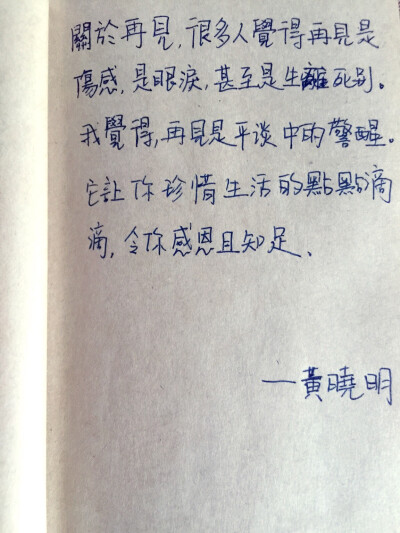 關於再見，很多人覺得再見是
傷感，是眼淚，甚至是生離死别。
我覺得，再見是平谈中的警醒。
它让你珍惜生活的點點滴
滴，令你感恩且知足、
—黃曉明